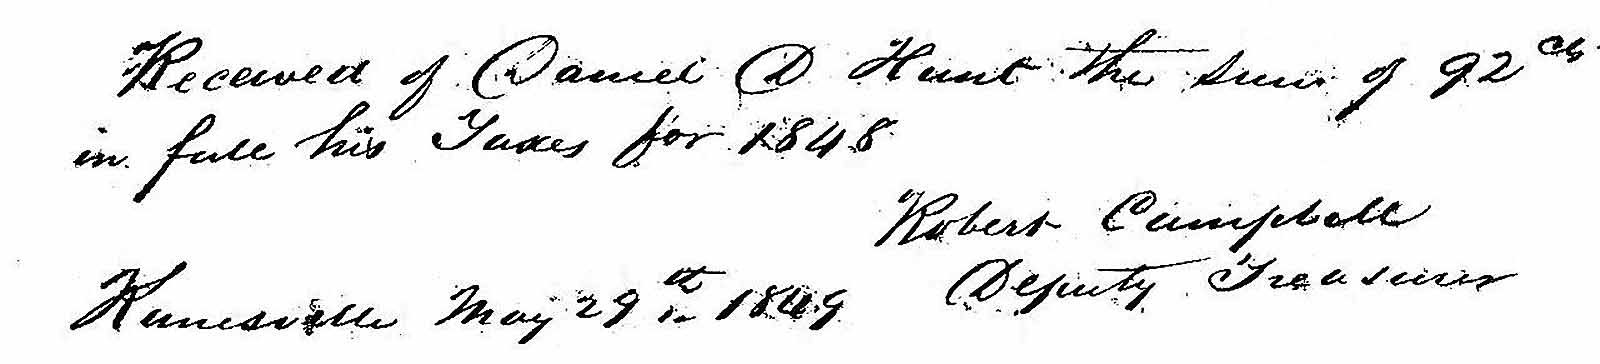 Received of Daniel D Hunt the sum of 92 cts
in full his Taxes for 1848
Robert Campbell
Deputy Treasurer
Kanesville May 29th 1849